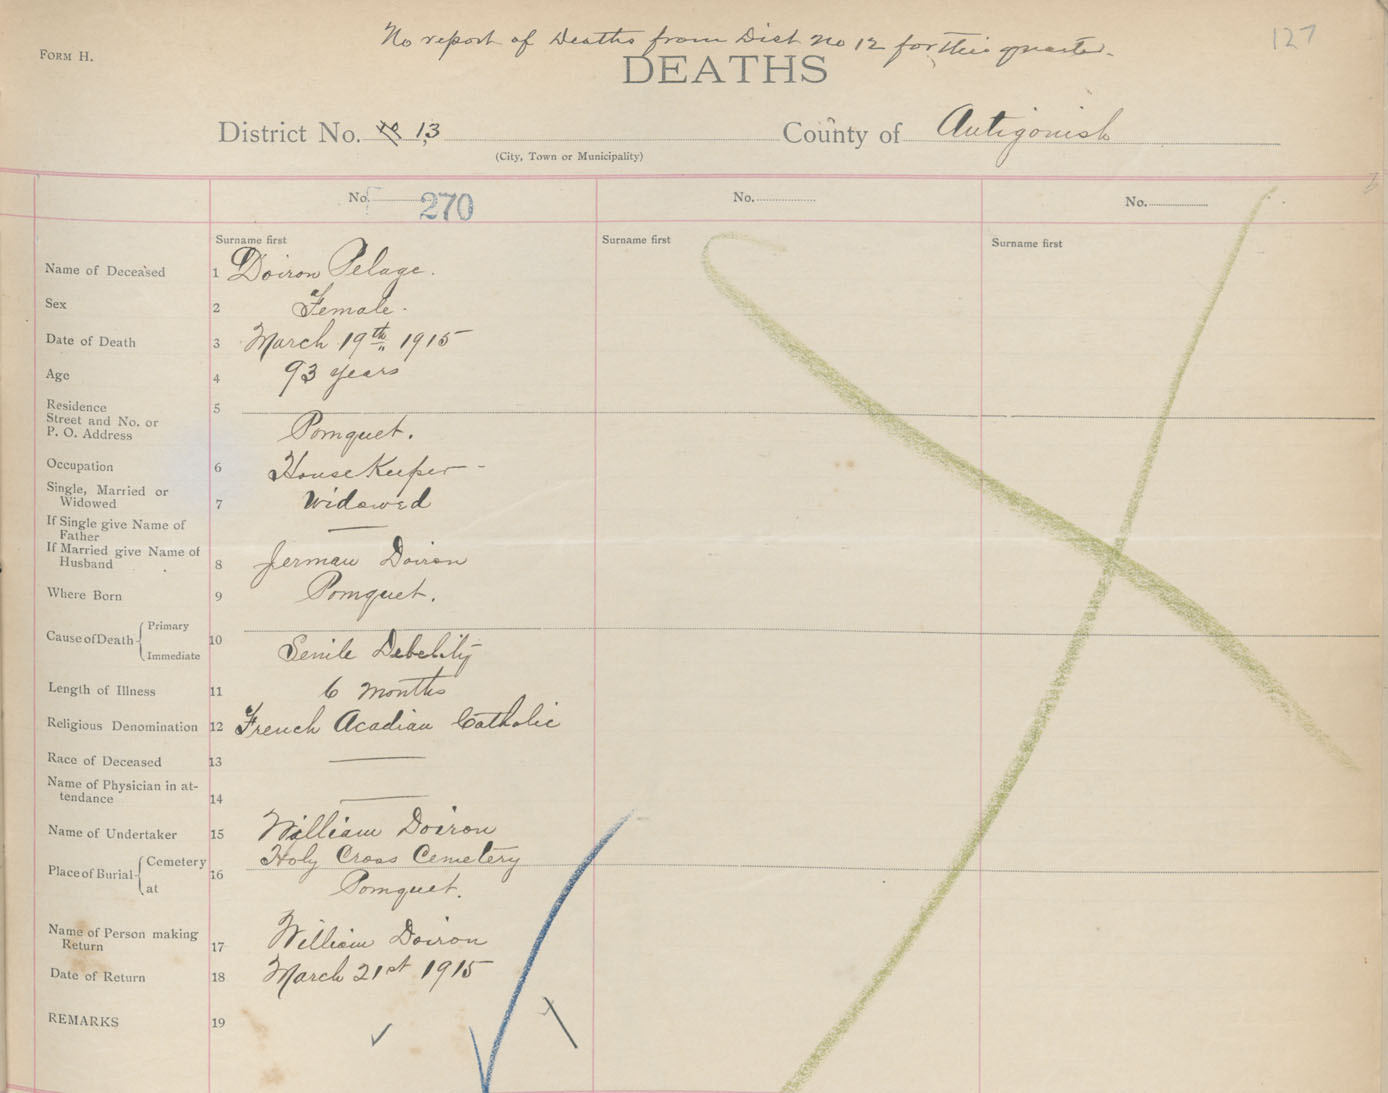 No report of Deaths from Dist No 12 for this quarter.
127
FORM H.
DEATHS
District No. 13
County of Antigonish
(City, Town or Municipality)
No. 270
No.
No.
Surname first
Surname first
Surname first
Name of Deceased 1 Doiron Pelage.
Sex 2 Female.
Date of Death 3 March 19th 1915
Age 4 93 years
Residence
Street and No. or
P. O. Address
5 Pomquet.
Occupation 6 House Keeper -
Single, Married or
Widowed 7 Widowed
If Single give Name of
Father
If Married give Name of
Husband 8 Jerman Doiron
Where Born 9 Pomquet.
Cause of Death { Primary
Immediate
10 Senile Debelity
Length of Illness 11 6 Months
Religious Denomination 12 French Acadian Catholic
Race of Deceased 13 —
Name of Physician in at-
tendance 14 —
Name of Undertaker 15 William Doiron
Place of Burial { Cemetery
at
16 Holy Cross Cemetery
Pomquet.
Name of Person making
Return 17 William Doiron
Date of Return 18 March 21st 1915
REMARKS 19